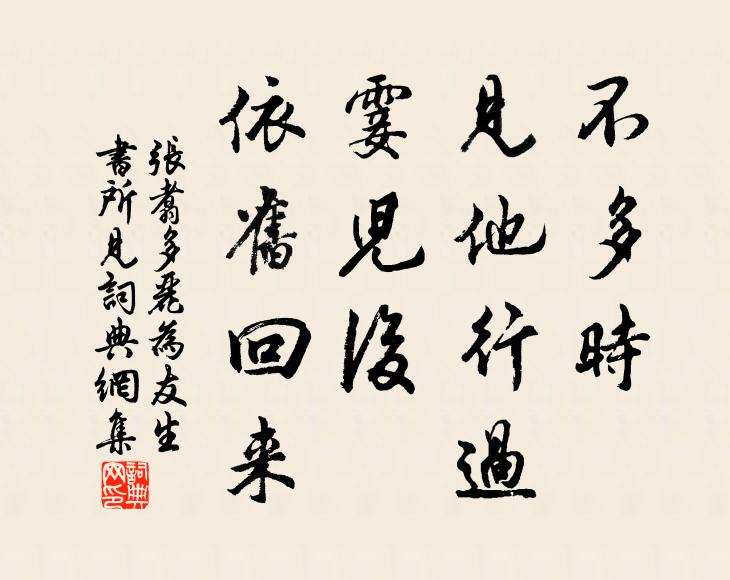 不多時
見他行過
霎兒後
依舊回来
張翥多麗為友生
書所見詞典網集
詞典
网印